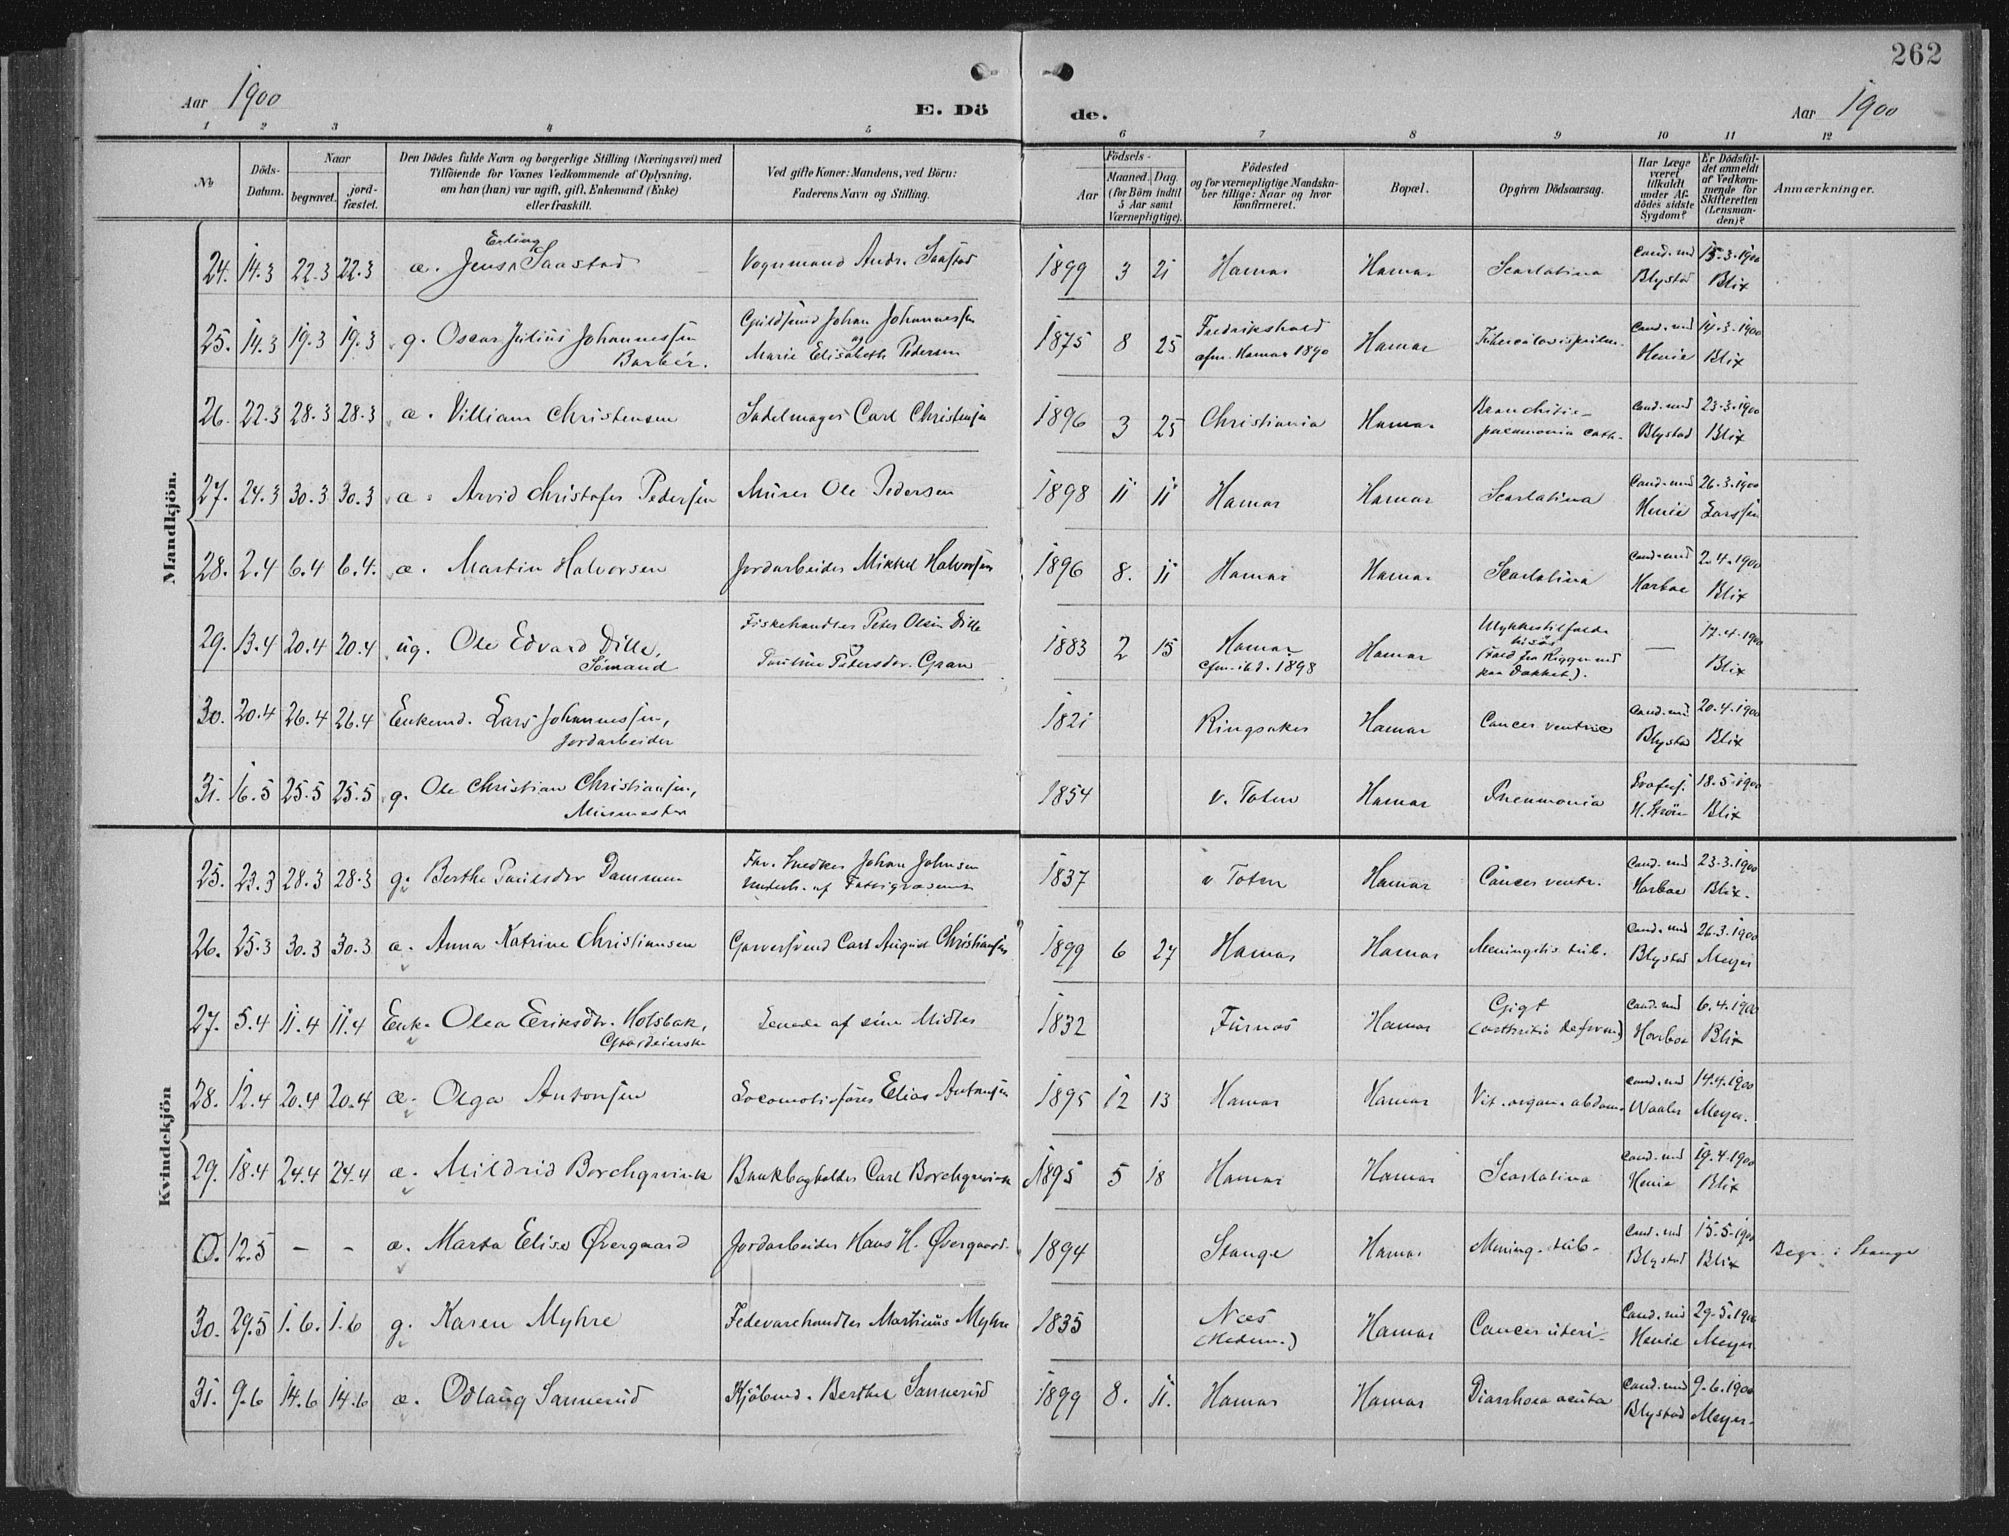 262
Aar 1900
E. Dö
de.
Aar 1900
1 2 3 4 5 6 7 8 9 10 11 12
No
Döds-Datum.
Naar
begravet.
jord-fæstet.
Den Dödes fulde Navn og borgerlige Stilling (Næringsvei) med
Tilföiende for Voxnes Vedkommende af Oplysning,
om han (hun) var ugift, gift, Enkemand (Enke)
eller fraskilt.
Ved gifte Koner: Mandens, ved Börn:
Faderens Navn og Stilling.
Födsels-
Aar
Maaned. Dag.
(for Börn indtil
5 Aar samt
Værnepligtige).
Födested
og for værnepligtige Mandska-
ber tillige: Naar og hvor
konfirmeret.
Bopæl.
Opgiven Dödsaarsag.
Har Læge
været
tilkaldt
under Af-
dödes sidste
Sygdom?
Er Dödsfal-
det anmeldt
af Vedkom-
mende for
Skifteretten
(Lensman-
den)?
Anmærkninger.
Mandkjön.
24. 14.3 22.3 22.3 æ. Jens Erling Saastad Vognmand Andr. Saastad 1899 3 21 Hamar Hamar Scarlatina Cand. med Blystad 15.3.1900 Blix
25. 14.3 19.3 19.3 g. Oscar Julius Johannessen Barbér. Guldsmed Johan Johannessen og Marie Elisabeth Pedersen 1875 8 25 Fredrikshald cfm. Hamar 1890 Hamar Cand. med Henie 14.3.1900 Blix
26. 22.3 28.3 28.3 æ. Villiam Christensen Sadelmager Carl Christensen 1896 3 25 Christiania Hamar Bronchitis- pneumonia cath. Cand. med Blystad 23.3.1900 Blix
27. 24.3 30.3 30.3 æ. Arvid Christofer Pedersen Murer Ole Pedersen 1898 11 11 Hamar Hamar Scarlatina Cand. med Henie 26.3.1900 Larssen
28. 2.4 6.4 6.4. æ. Martin Halvorsen Jordarbeider Mikkel Halvorsen 1896 8. 11 Hamar Hamar Scarlatina Cand. med Harboe 2.4.1900 Blix
29. 13.4 20.4 20.4 ug. Ole Edvard Dille, Sömand Fiskehandler Peter Olsen Dille og Pauline Pedersdr. Gran 1883 2 15 Hamar cfm. ibd. 1898 Hamar Ulykkestilfælde tilsös (Fald fra Riggen ned paa Dækket). — 17.4.1900 Blix
30. 20.4 26.4 26.4 Enkemd. Lars Johannessen, Jordarbeider 1821 Ringsaker Hamar Cancer ventric Cand. med Blystad 20.4.1900 Blix
31. 16.5 25.5 25.5 g. Ole Christian Christiansen, Murmester 1854 v. Toten Hamar Pneumonia Profess. H. Ström 18.5.1900 Blix
Kvindekjön
25. 23.3 28.3 28.3 g. Berthe Paulsdr Dammen Fhv. Snedker Johan Johnsen Underh. af Fattigvæsenet 1837 v Toten Hamar Cancer ventr. Cand. med Harboe 23.3.1900 Blix.
26. 25.3 30.3 30.3 æ. Anna Katrine Christiansen Garversvend Carl August Christiansen 1899 6 27 Hamar Hamar Meningitis tub. Cand. med Blystad 26.3.1900 Meyer
27. 5.4 11.4 11.4 Enke Olea Eriksdtr. Holsbak, Gaardeierske Levede af sine Midler 1832 Furnæs Hamar Gigt (arthritis deform) Cand. med Harboe 6.4.1900 Blix
28. 12.4 20.4 20.4 æ. Olga Antonsen Locomotivförer Elias Antonsen 1895 12 13 Hamar Hamar Vit. organ. abdom. Cand. med Waaler 14.4.1900 Meyer.
29. 18.4 24.4 24.4 æ. Mildrid Borchgrevink Bankbogholder Carl Borchgrevink 1895 5 18 Hamar Hamar Scarlatina Cand. med Henie 19.4.1900 Blix
0. 12.5 – – æ. Marta Elise Øvergaard Jordarbeider Hans H. Øvergaard. 1894 Stange Hamar Mening. tub. Cand. med Blystad 15.5.1900 Blix Begr. i Stange
30. 29.5 1.6. 1.6 g. Karen Myhre Fedevarehandler Martinius Myhre 1835 Næs (Hedem.) Hamar Cancer uteri. Cand. med Henie 29.5.1900 Meyer
31. 9.6 14.6 14.6 æ. Odlaug Sannerud Kjöbmd. Berthel Sannerud 1899 8. 11. Hamar Hamar Diarrhoea acuta Cand. med Blystad 9.6.1900 Meyer.